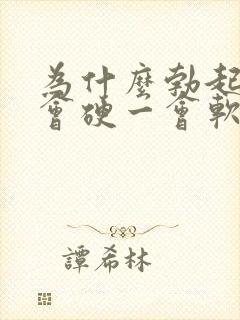 為什麼勃起
會硬一會軟
譚希林